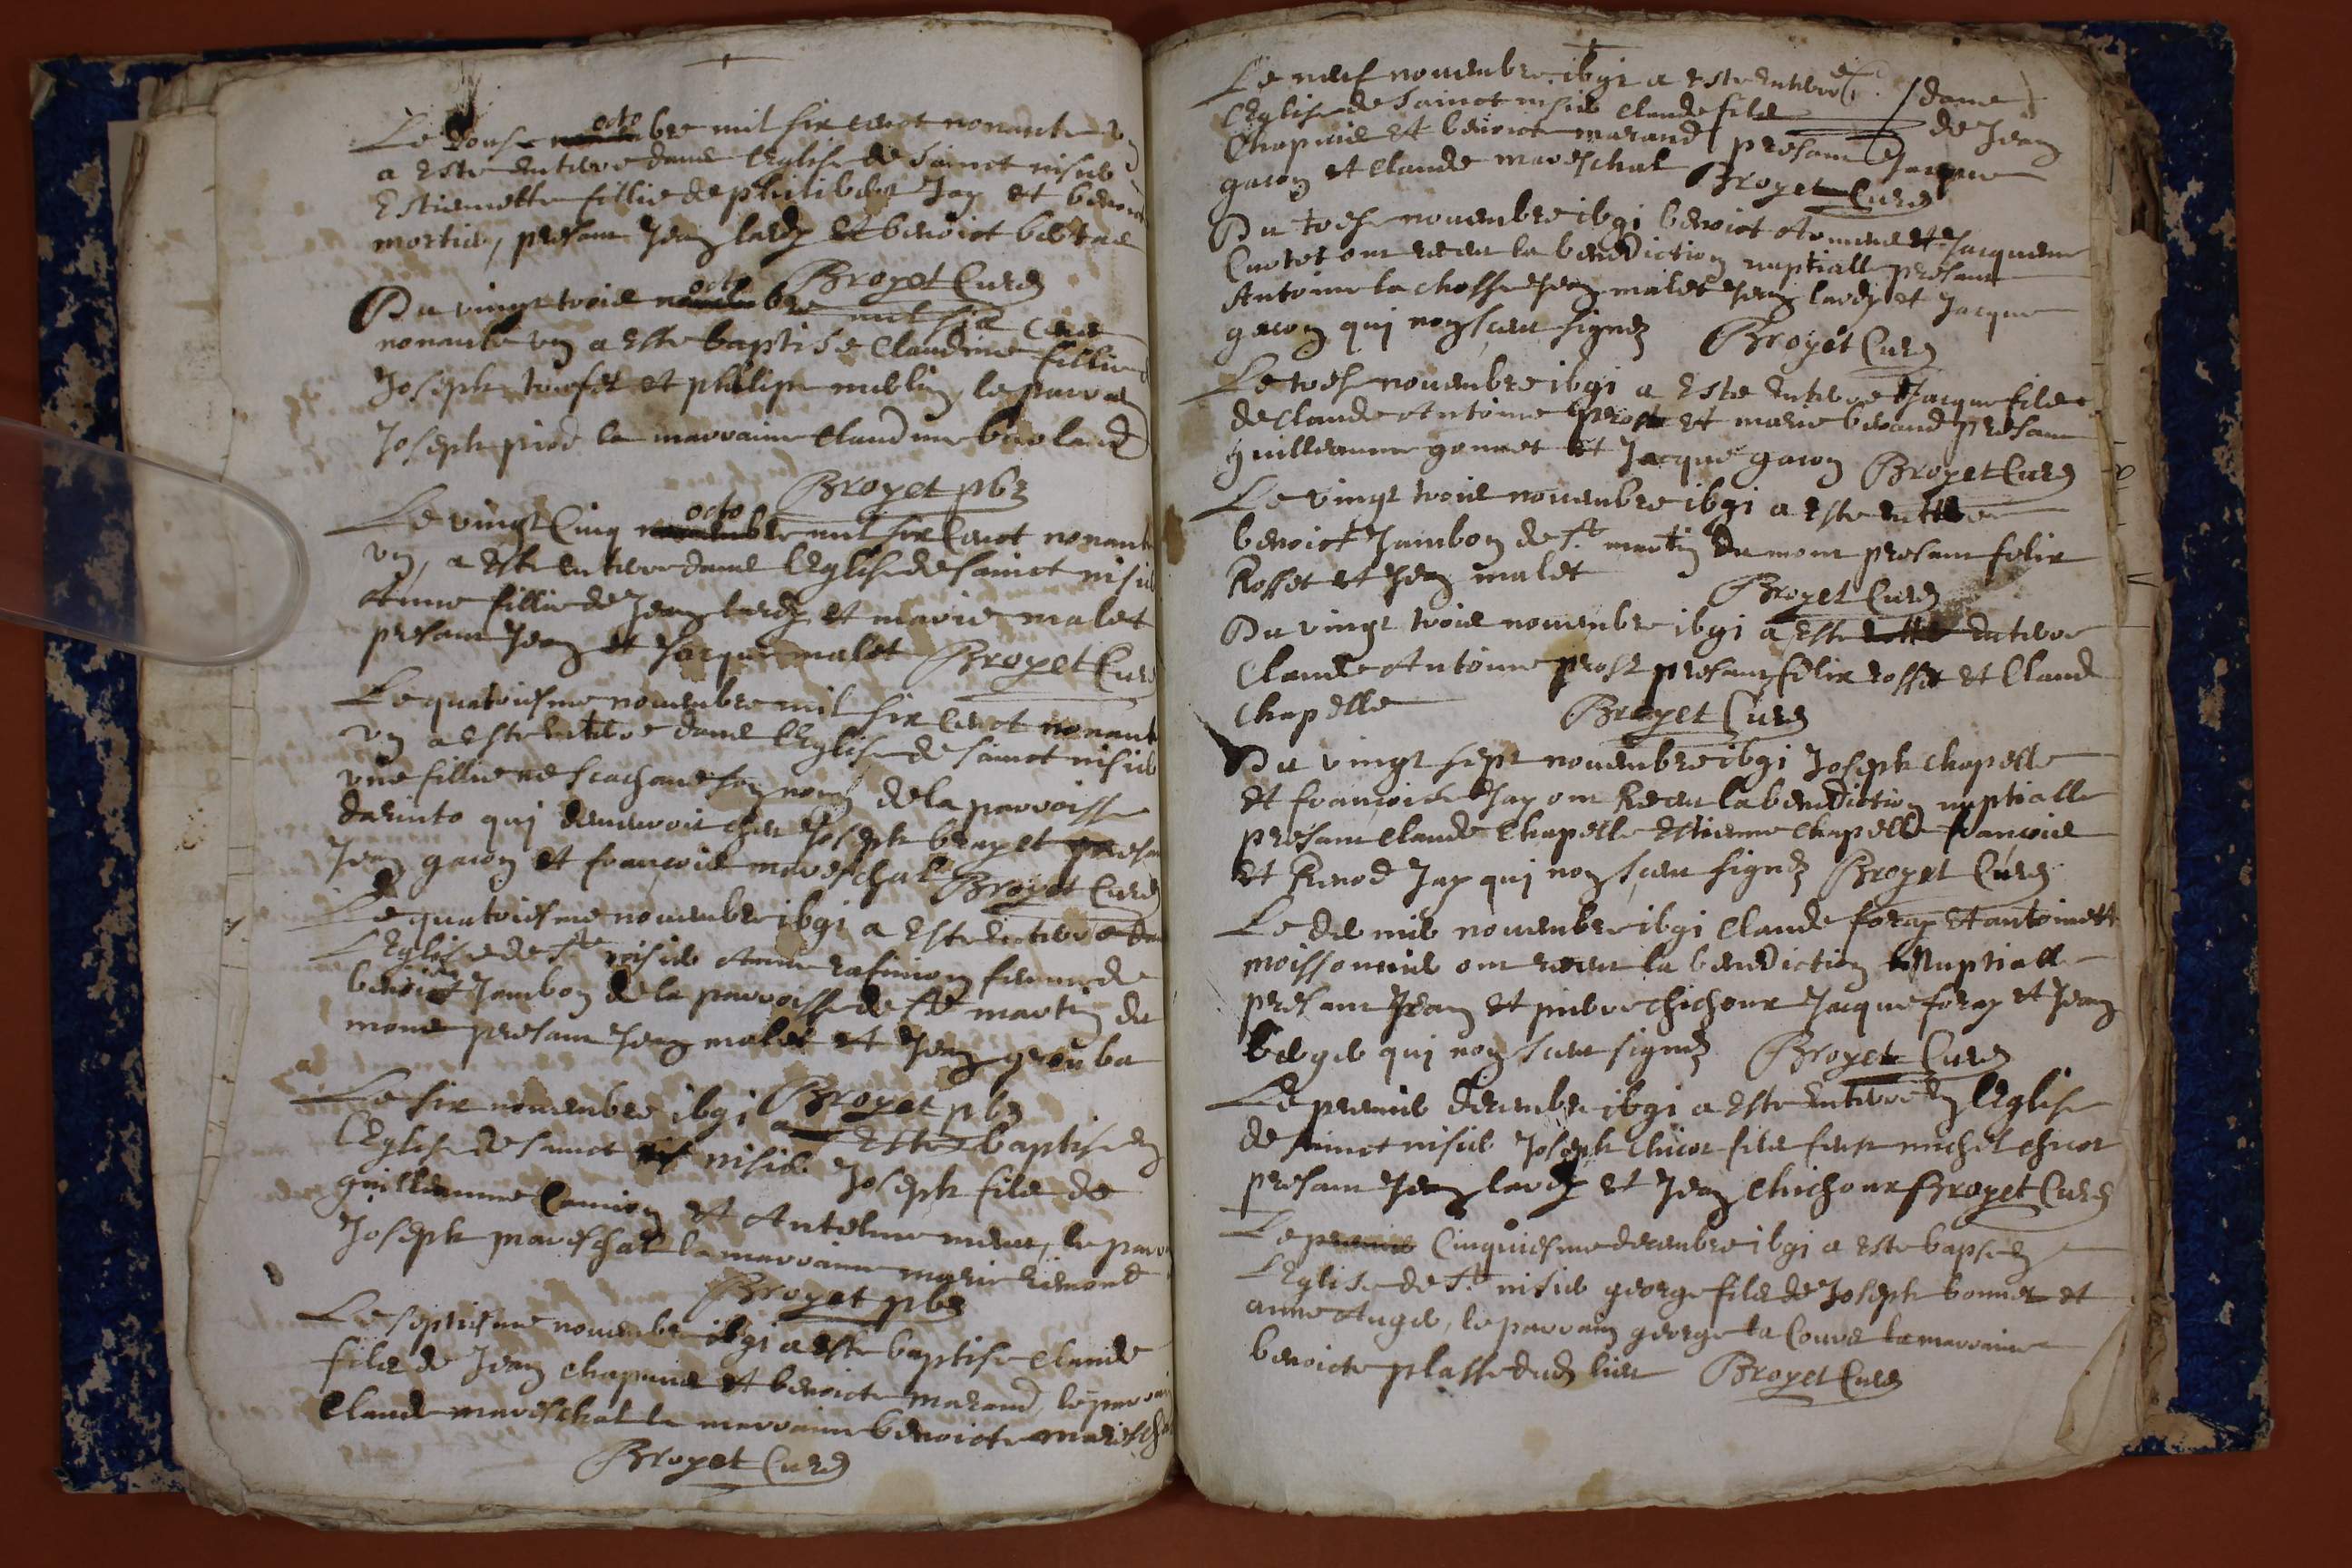 Le douse octobre mil six cent nonante un
a este enterre dans l'Eglise de sainct nisier
Estiennette fillie de philibert Jay et benoi
mortier, presant Jean lardy et benoict
Broyet Curé
Du vingt trois octobre mil six cent
nonante un a este baptisé Claudine fillie
Joseph et philipe le parrain
Joseph la marraine Claudine
Broyet pbr
Le vingt Cinq octobre mil six Cent nonante
un, a este enterre dans l'Eglise de sainct nisier
Anne fillie de Jean lardy et marie malet
presant Jean et Jacque malet Broyet Curé
Le quatriesme novembre mil six Cent nonante
un a este enterre dans l'Eglise de sainct nisier
une fillie ne scachant son nom de la parroisse
darinto qui demeuroit chez Joseph brayet presant
Jean gacon et françois mareschal Broyet Curé
Le quatriesme novembre 1691 a este enterre dans
l'Eglise de St nisier Anne femme de
benoict Jambon de la parroisse de St martin du
mont presant Jean malet et Jean
Broyet pbr
Le six novembre 1691 a este baptisé en
l'Eglise de sainct nisier Joseph fils de
guillemme Camion et Antelme le parrain
Joseph mareschal la marraine marie
Broyet pbr
Le septiesme novembre 1691 a este baptise Claude
fils de Jean Chapuis et benoicte marand, le parrain
Claude mareschal la marraine benoicte mareschal
Broyet Curé
Le neuf novembre 1691 a este enterre dans
l'Eglise de sainct nisier Claude fils de Jean
Chapuis et benoicte marand presant Jacque
gacon et Claude mareschal Broyet Curé
Du novembre 1691 benoict et Jacqueme
ont receu la benediction nuptialle presant
Antoine la chasse Jean malet Jean lardy et Jacque
gacon qui non sceu signer Broyet Curé
Le novembre 1691 a este enterre Jacque fils
de Claude Antoine prost et marie presant
guillemme gonnet et Jacque gacon Broyet Curé
Le vingt trois novembre 1691 a este enterre
benoict Jambon de St martin du mont presant felix
Rosset et Jean malet Broyet Curé
Du vingt trois novembre 1691 a este enterre
Claude Antoine prost presant felix rosset et Claude
Chapelle Broyet Curé
Du vingt sept novembre 1691 Joseph Chapelle
et françoise Jay ont Receu la benediction nuptialle
presant Claude Chapelle Estienne Chapelle françois
et Renod Jay qui non sceu signer Broyet Curé
Le dernier novembre 1691 Claude foray et antoinette
moissonnier ont receu la benediction Nuptialle
presant Jean et pierre chichoux Jacque foray et Jean
berger qui non sceu signer Broyet Curé
Le premier decembre 1691 a este enterre en l'Eglise
de sainct nisier Joseph Chicot fils feu michel chicot
presant Jean lardy et Jean chichoux Broyet Curé
Le Cinquiesme decembre 1691 a este baptisé en
l'Eglise de St nisier george fils de Joseph bonnet et
anne Auger, le parrain george la Coure la marraine
benoicte plasse dud lieu Broyet Curé